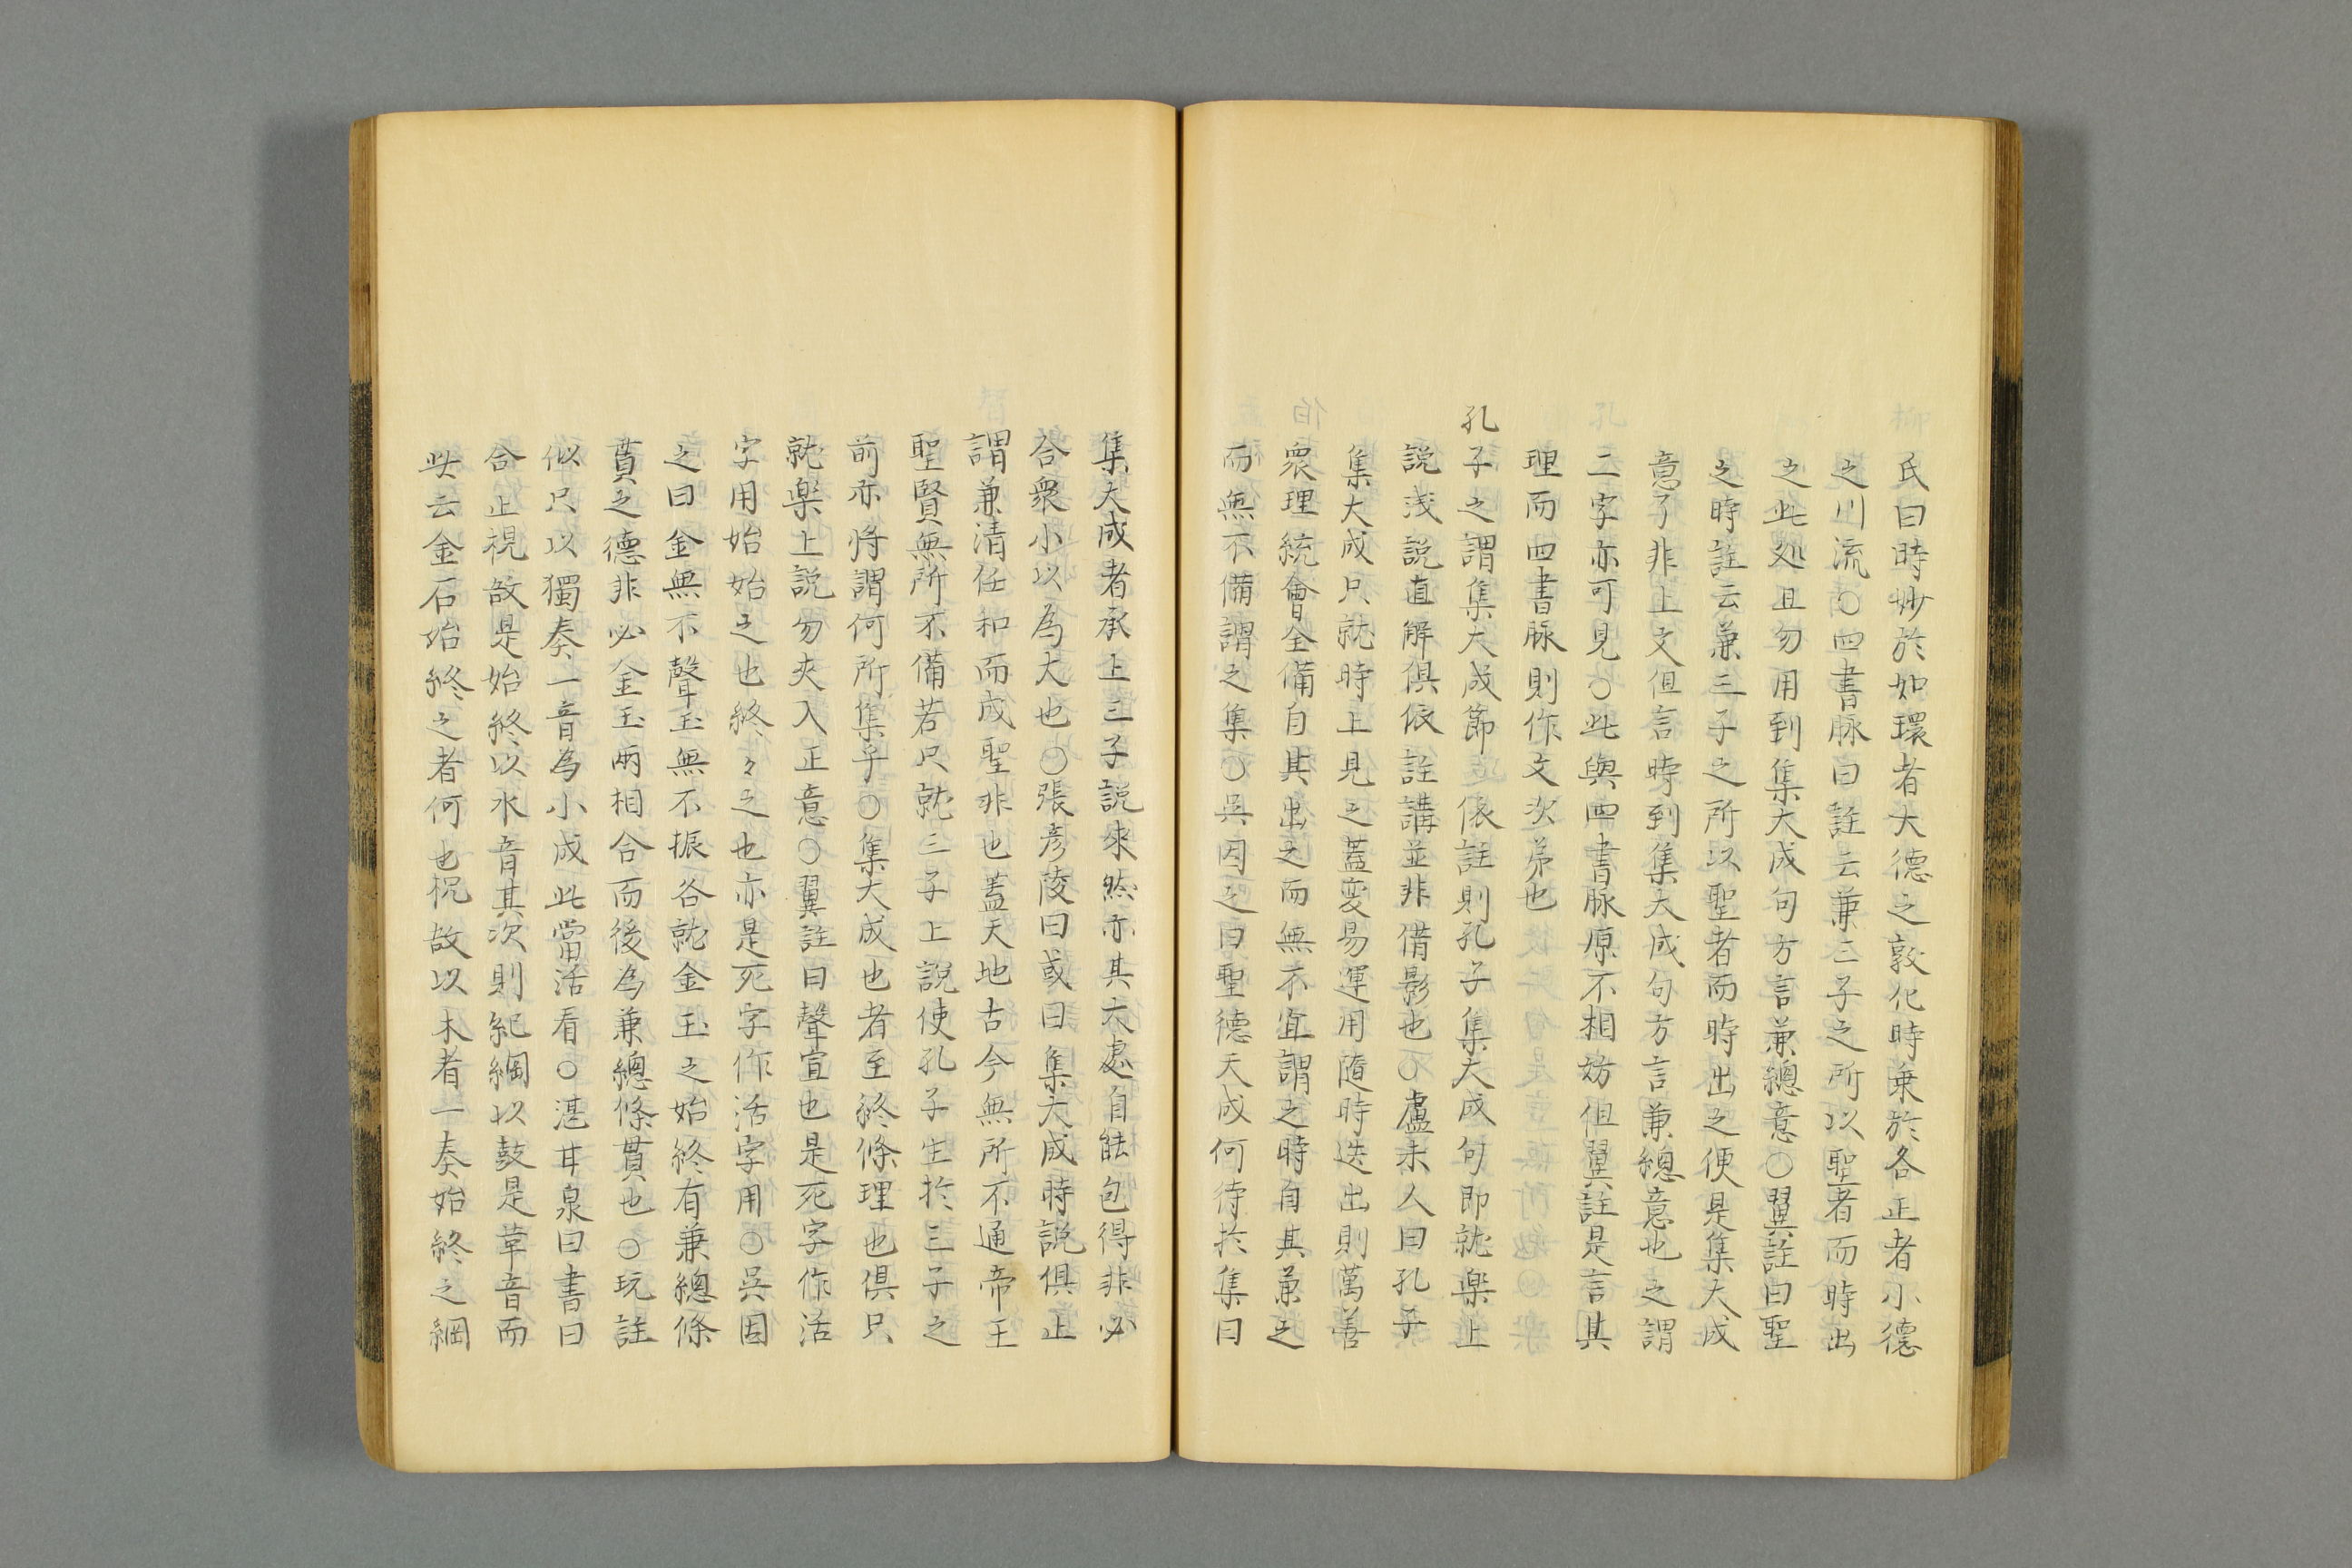 氏曰時妙於如環者大德之敦化時乗於各正者小德
之川流○四書脉曰註云兼三子之所以聖者而時出
之此処且勿用到集大成句方言兼總意○翼註曰聖
之時註云兼三子之所以聖者而時出之便是集大成
意了非上文但言時到集大成句方言兼總意也之謂
二字亦可見○此與四書脉原不相妨但翼註是言其
理而四書脉則作文次第也
孔子之謂集大成節依註則孔子集大成句即就楽上
説浅説直解倶依註講並非借影也○盧未人曰孔子
集大成只就時上見之蓋変易運用随時迭出則萬善
衆理統會全備自其出之而無不宜謂之時自其兼之
而無不備謂之集○呉因之曰聖德大成何待於集曰
集大成者承上三子説來然亦其大處自能包得非必
合衆小以為大也○張彦陵曰或曰集大成時説倶止
謂兼清任和而成聖非也蓋天地古今無所不通帝王
聖賢無所不備若只就三子上説使孔子生於三子之
前亦将謂何所集乎○集大成也者至終條理也倶只
就楽上説勿夾入正意○翼註曰聲宣也是死字作活
字用始始之也終々之也亦是死字作活字用○呉因
之曰金無不聲玉無不振各就金玉之始終有兼總條
貫之德非必金玉両相合而後為兼總條貫也○玩註
似只以獨奏一音為小成此當活看○湛甘泉曰書曰
合止柷敔是始終以木音其次則紀綱以鼓是革音而
此云金石始終之者何也柷敔以木者一奏始終之綱